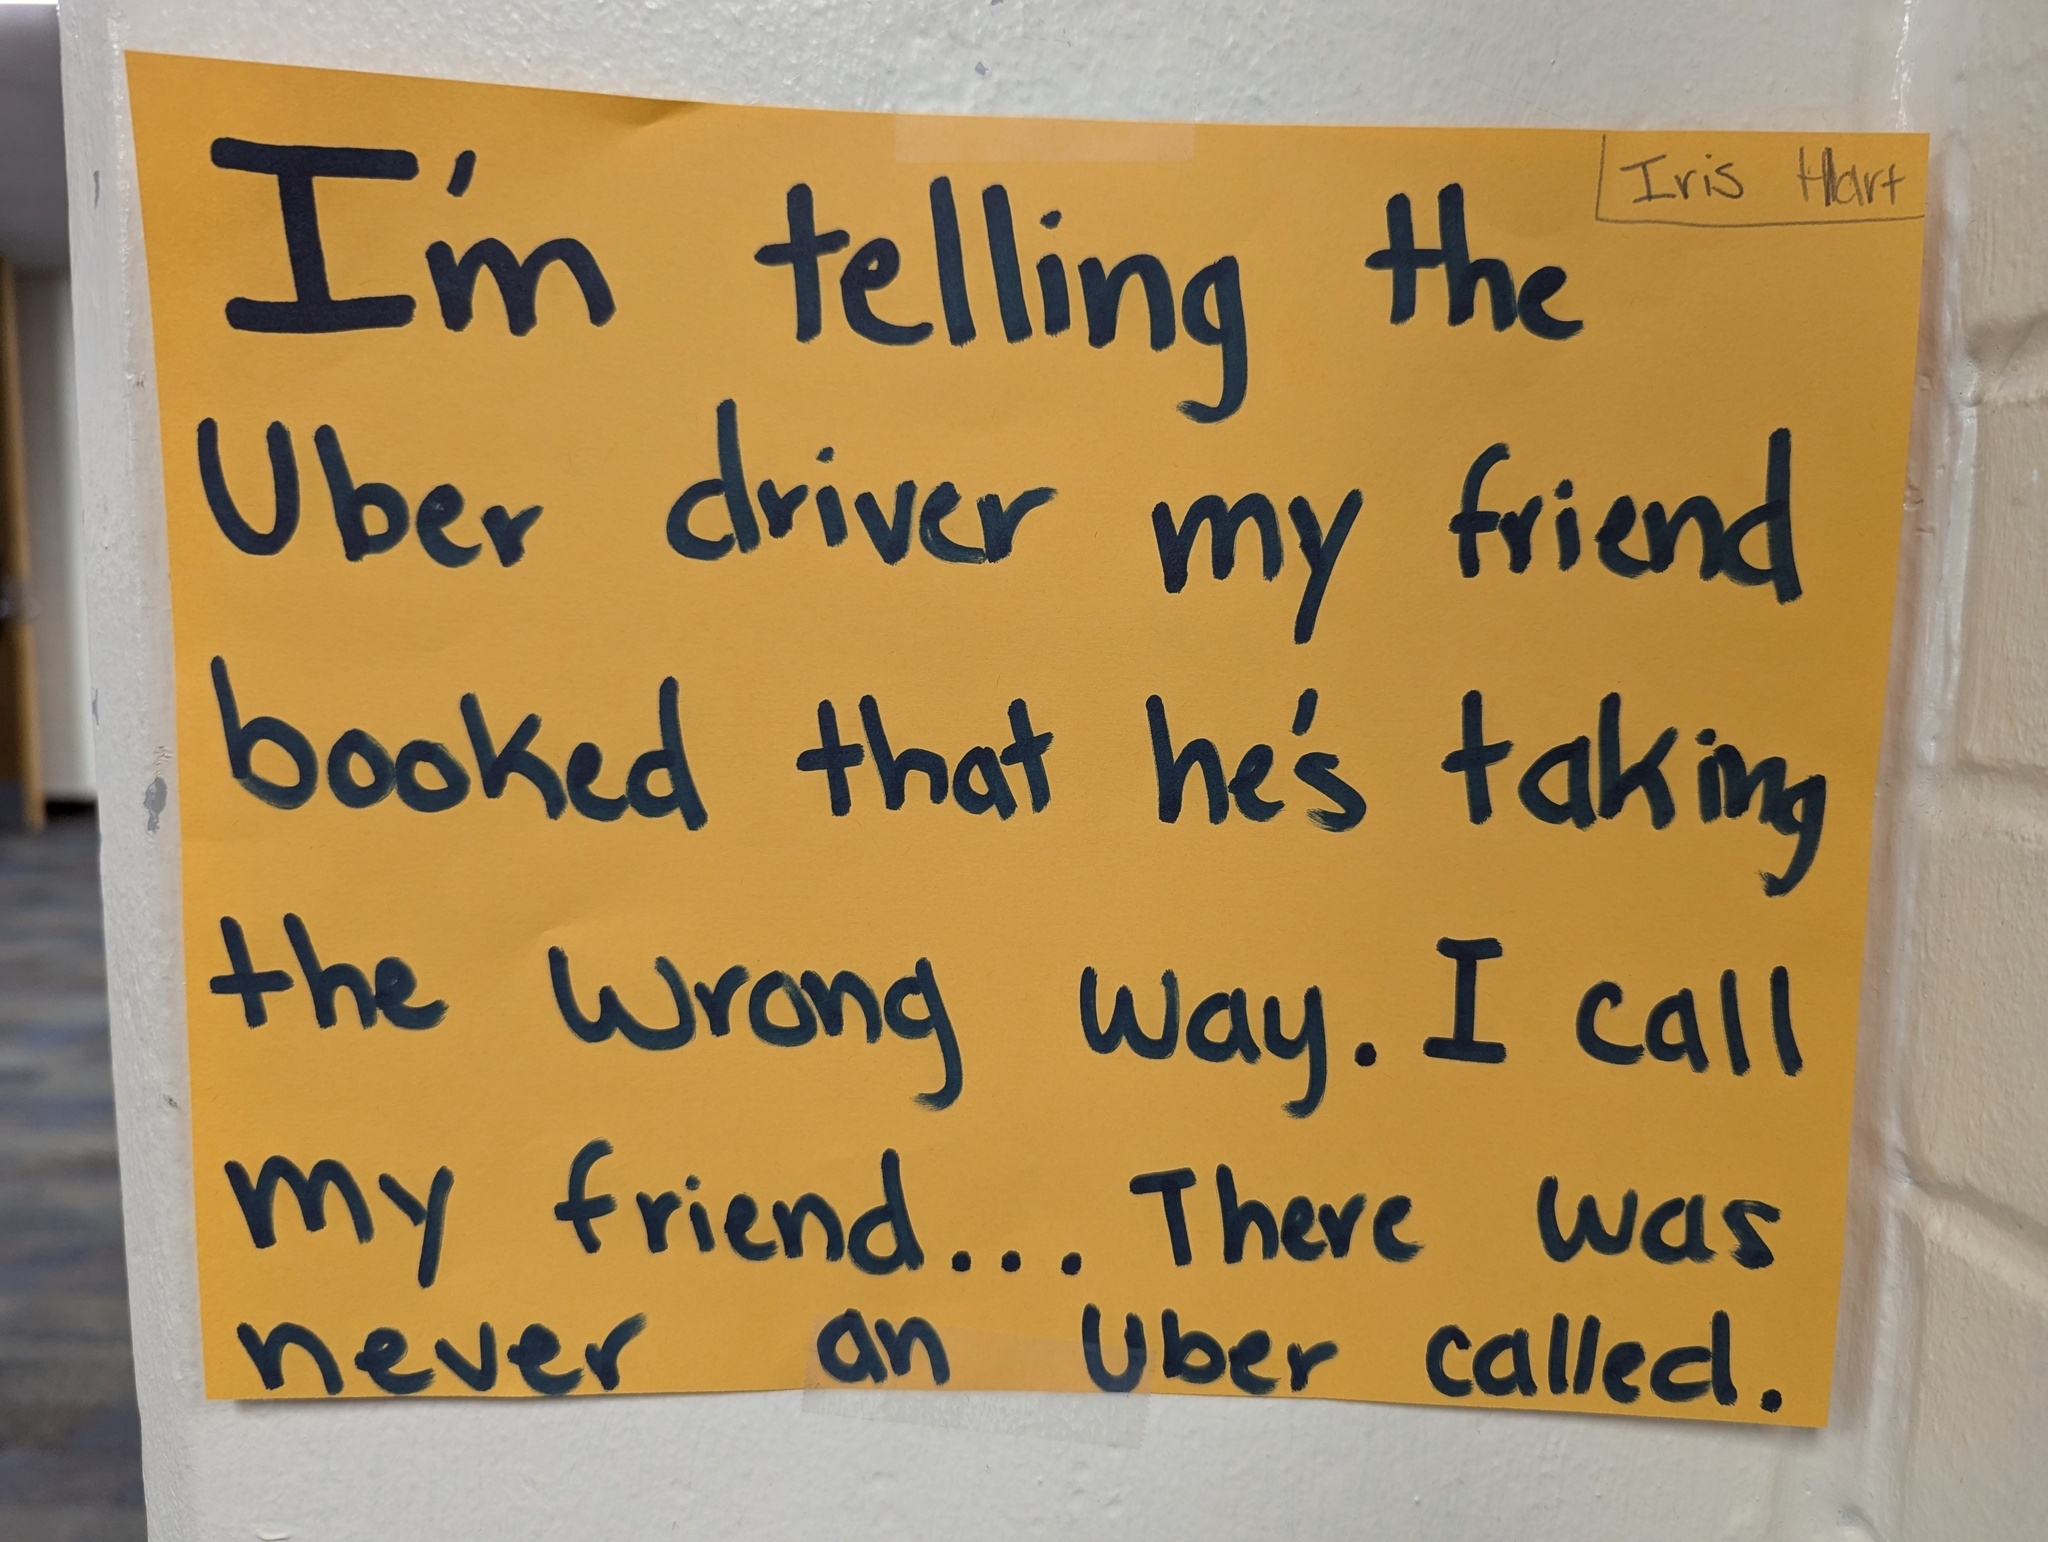 Iris Hart
I'm telling the
Uber driver my friend
booked that he's taking
the wrong way. I call
my friend... There was
never an Uber called.